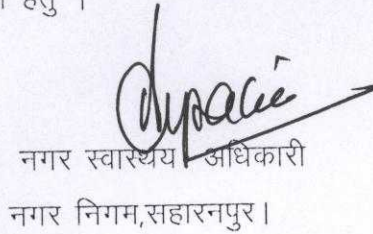 हेतु ।
नगर स्वास्थय अधिकारी
नगर निगम,सहारनपुर।